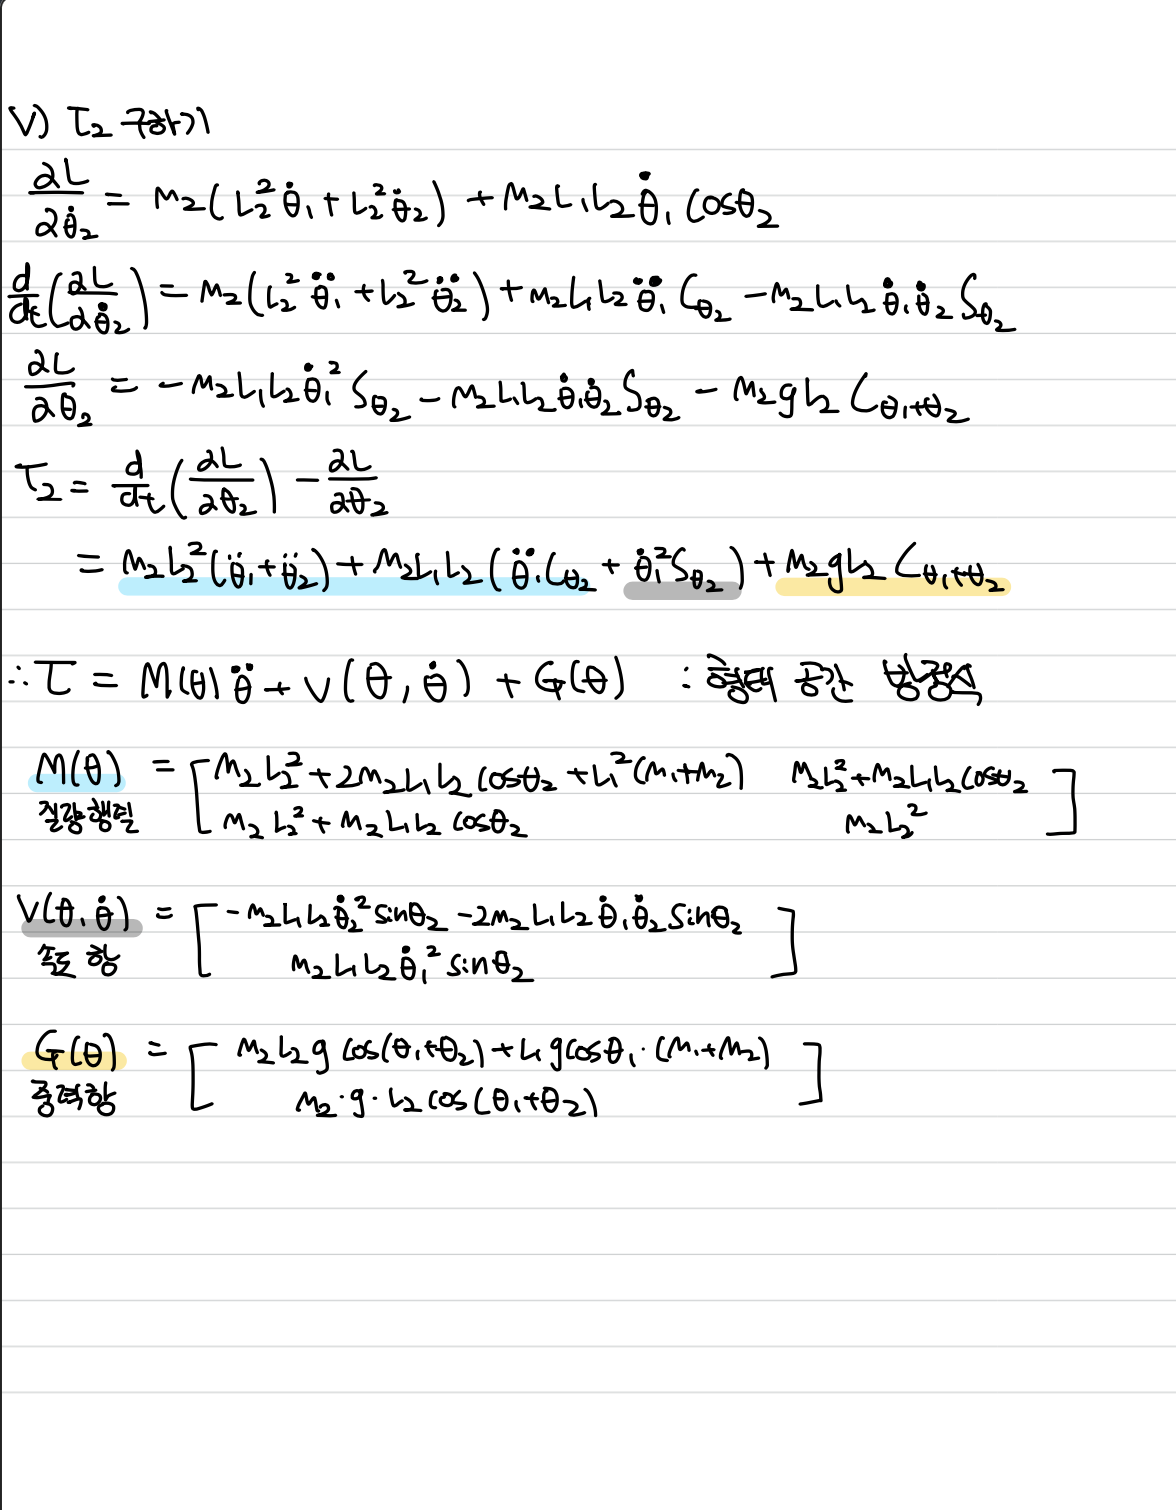 V) τ₂ 구하기
∂L/∂θ̇₂ = m₂(L₂²θ̇₁ + L₂²θ̇₂) + m₂L₁L₂θ̇₁cosθ₂
d/dt(∂L/∂θ̇₂) = m₂(L₂²θ̈₁ + L₂²θ̈₂) + m₂L₁L₂θ̈₁Cθ₂ - m₂L₁L₂θ̇₁θ̇₂Sθ₂
∂L/∂θ₂ = -m₂L₁L₂θ̇₁²Sθ₂ - m₂L₁L₂θ̇₁θ̇₂Sθ₂ - m₂gL₂Cθ₁+θ₂
τ₂ = d/dt(∂L/∂θ₂) - ∂L/∂θ₂
= m₂L₂²(θ̈₁+θ̈₂) + m₂L₁L₂(θ̈₁Cθ₂ + θ̇₁²Sθ₂) + m₂gL₂Cθ₁+θ₂
∴ τ = M(θ)θ̈ + V(θ, θ̇) + G(θ) : 형태 공간 방정식
M(θ) = [m₂L₂² + 2m₂L₁L₂cosθ₂ + L₁²(m₁+m₂) m₂L₂² + m₂L₁L₂cosθ₂
질량행렬 m₂L₂² + m₂L₁L₂cosθ₂ m₂L₂²]
V(θ, θ̇) = [-m₂L₁L₂θ̇₂²sinθ₂ - 2m₂L₁L₂θ̇₁θ̇₂sinθ₂
속도 항 m₂L₁L₂θ̇₁²sinθ₂]
G(θ) = [m₂L₂g cos(θ₁+θ₂) + L₁gcosθ₁·(m₁+m₂)
중력항 m₂·g·L₂cos(θ₁+θ₂)]